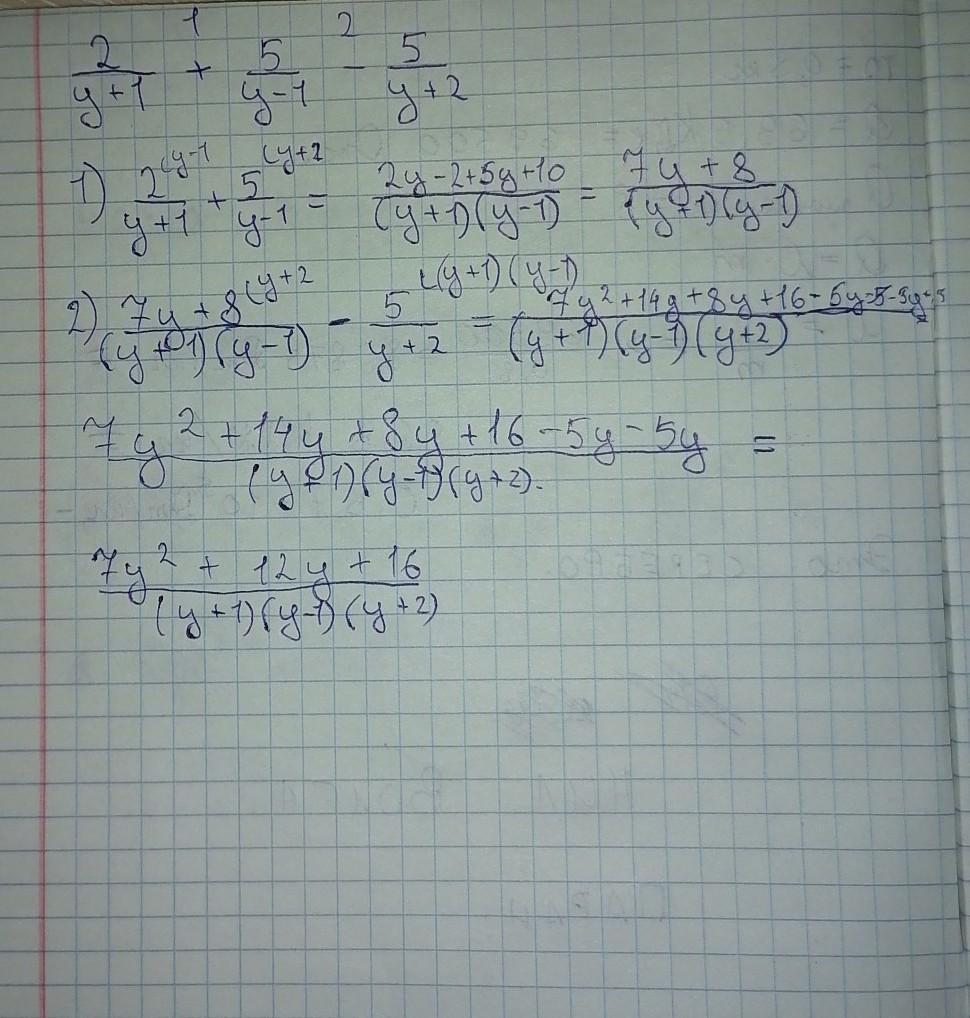 1 2
2/(y+1) + 5/(y-1) - 5/(y+2)
1) 2^(y-1/(y+1) + 5^(y+2/(y-1) = (2y-2+5y+10)/((y+1)(y-1)) = (7y+8)/((y+1)(y-1))
2) 7y+8^(y+2/((y+1)(y-1)) - 5^((y+1)(y-1)/(y+2) = (7y²+14y+8y+16-5y-5-5y+5)/((y+1)(y-1)(y+2))
(7y²+14y+8y+16-5y-5y)/((y+1)(y-1)(y+2)). =
(7y²+12y+16)/((y+1)(y-1)(y+2))